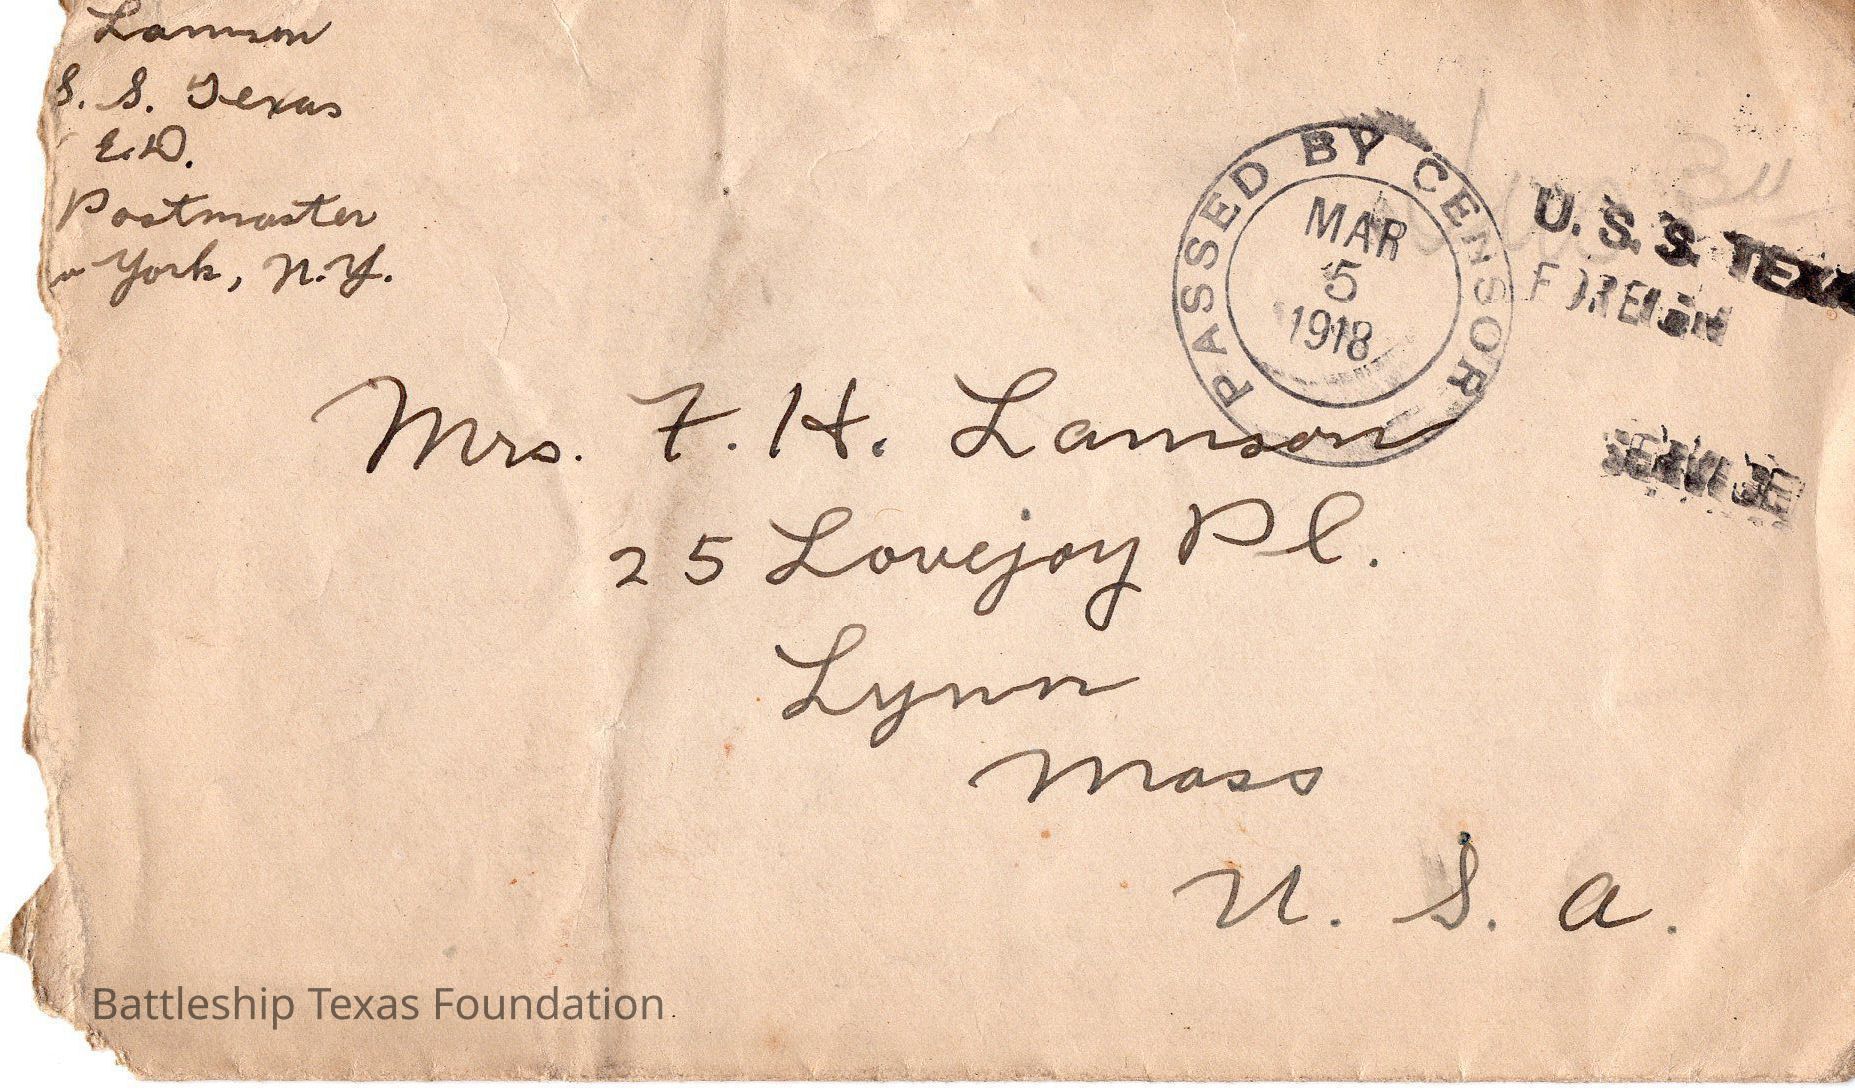 Lamson
S. S. Texas
E.D.
Postmaster
York, N.Y.
PASSED BY CENSOR
MAR
5
1918
U.S.S. TEXAS
FOREIGN
SERVICE
Mrs. F. H. Lamson
25 Lovejoy Pl.
Lynn
Mass
U. S. A.
Battleship Texas Foundation